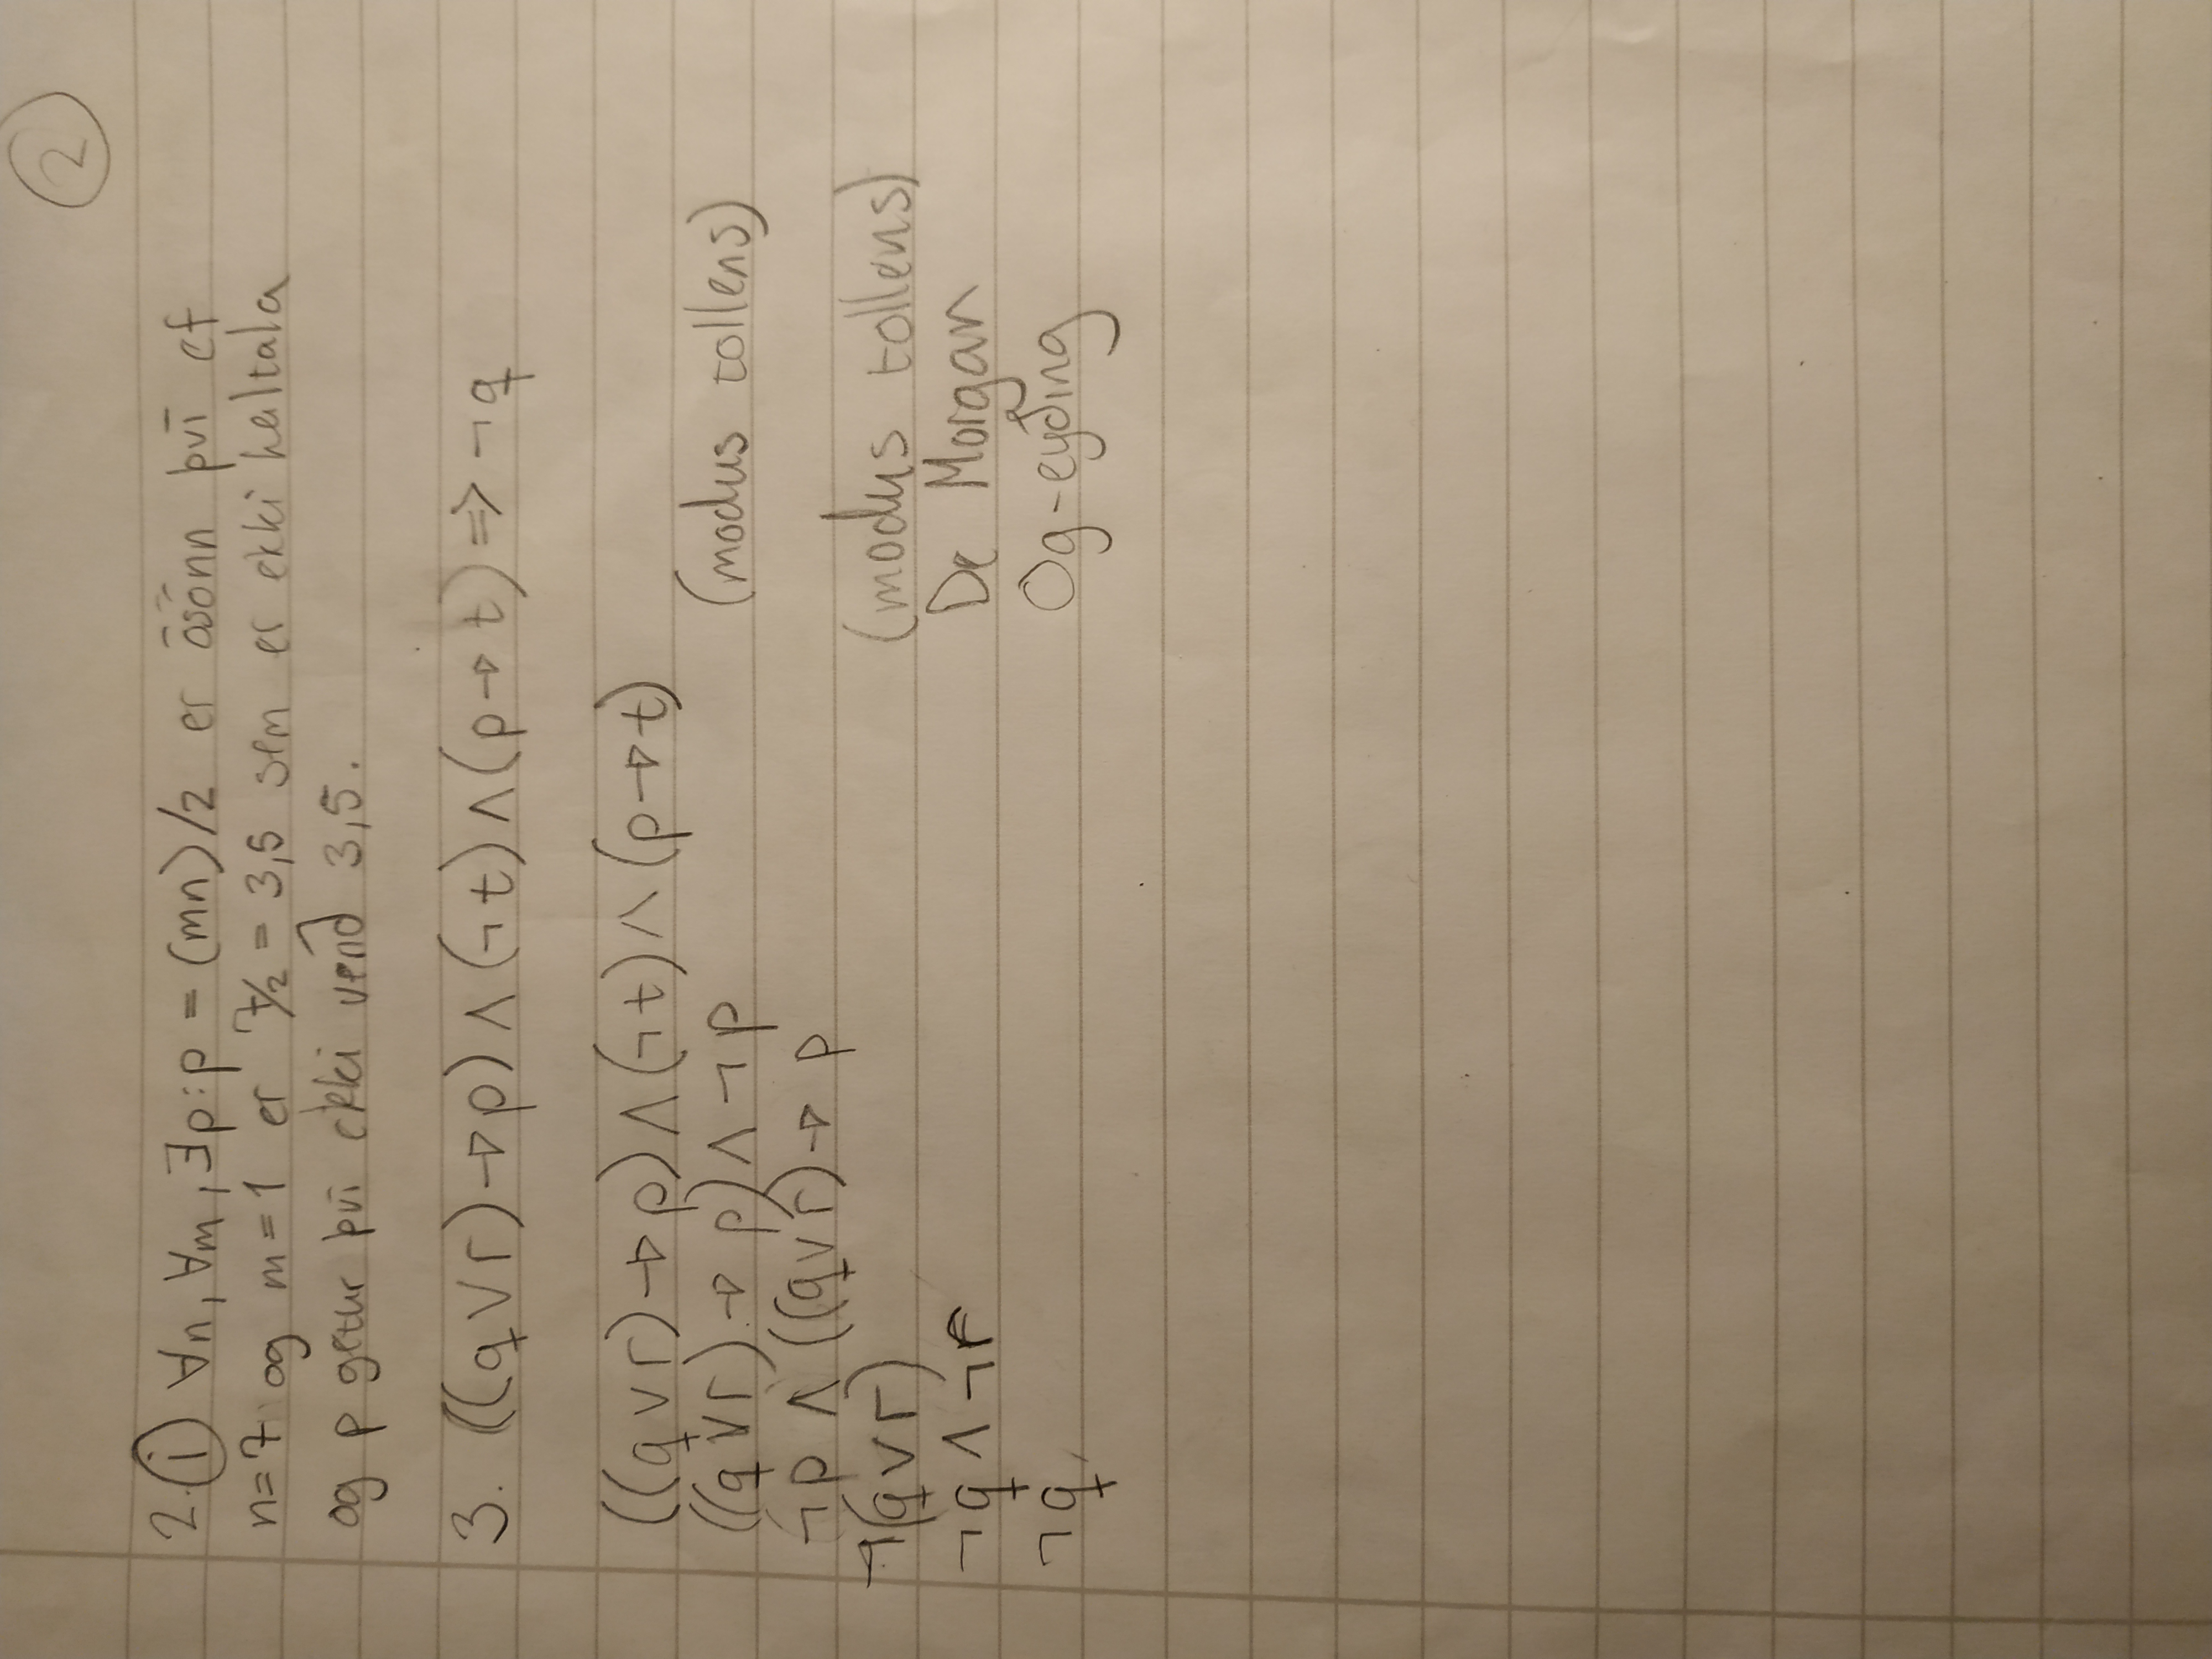 2
2. i ∀n, ∀m, ∃p: p = (mn)/2 er ósönn því ef
n=7 og m=1 er 7/2 = 3,5 sem er ekki heiltala
og p getur því ekki verið 3,5.
3. ((q∨r)→p)∧(¬t)∧(p→t) ⇒ ¬q
((q∨r)→p)∧(¬t)∧(p→t)
((q∨r)→p)∧¬p (modus tollens)
¬p∧((q∨r)→p
¬(q∨r) (modus tollens)
¬q∧¬r De Morgan
¬q Og-eyðing